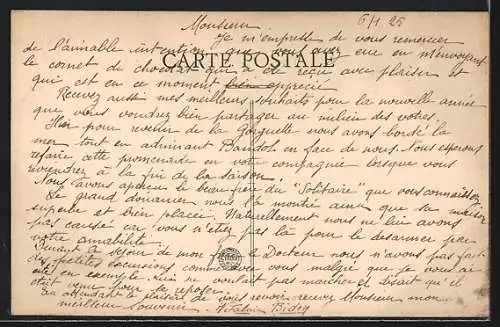 6/1 25
Monsieur
Je m'empresse de vous remercier
de l'aimable intention que vous avez eue en m'envoyant
CARTE POSTALE
le cornet de chocolat qui a été reçu avec plaisir et
qui est en ce moment bien apprécié
Recevez aussi mes meilleurs souhaits pour la nouvelle année
que vous voudrez bien partager au milieu des vôtres.
Hier pour revenir de la Gorguette nous avons bordé la
mer tout en admirant Bandol en face de nous. Nous espérons
refaire cette promenade en votre compagnie lorsque vous
reviendrez à la fin de la saison.
Nous avons aperçu le beau-frère du "Solitaire" que vous connaissez
Le grand domaine nous l'a montré ainsi que sa maison
superbe et bien placée. Naturellement nous ne lui avons
pas causé car vous n'étiez pas là pour le désarmer par
votre amabilité.
Durant le séjour de mon le Docteur nous n'avons pas fait
des petites excursions comme avec vous malgré que je vous ai
cité en exemple. Il ne voulait pas marcher et disait qu'il
était venu pour se reposer.
En attendant le plaisir de vous revoir recevez Monsieur mon
meilleur souvenir.